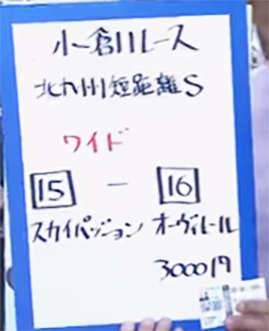 小倉11レース
北九州短距離S
ワイド
15 ー 16
スカイパッション オーヴィレール
3000円